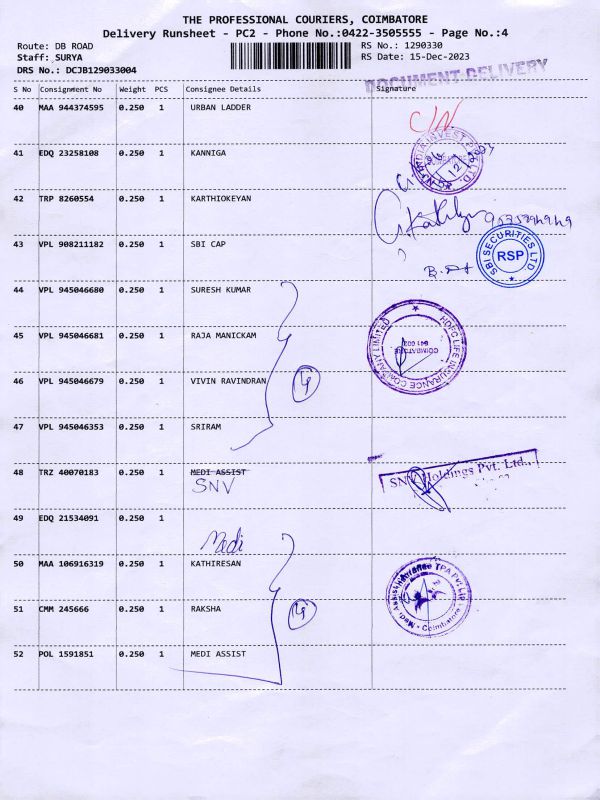 THE PROFESSIONAL COURIERS, COIMBATORE
Delivery Runsheet - PC2 - Phone No.:0422-3505555 - Page No.:4
Route: DB ROAD
RS No.: 1290330
Staff: SURYA
RS Date: 15-Dec-2023
DRS No.: DCJB129033004
DOCUMENT DELIVERY
S No Consignment No Weight PCS Consignee Details Signature
40 MAA 944374595 0.250 1 URBAN LADDER
C/N
41 EDQ 23258108 0.250 1 KANNIGA
42 TRP 8260554 0.250 1 KARTHIOKEYAN
43 VPL 908211182 0.250 1 SBI CAP
SBI SECURITIES LTD
RSP
44 VPL 945046680 0.250 1 SURESH KUMAR
45 VPL 945046681 0.250 1 RAJA MANICKAM
HDFC LIFE INSURANCE COMPANY LIMITED
COIMBATORE
641 002
46 VPL 945046679 0.250 1 VIVIN RAVINDRAN
4
47 VPL 945046353 0.250 1 SRIRAM
48 TRZ 40070183 0.250 1 MEDI ASSIST
SNV
SNV Holdings Pvt. Ltd.,
49 EDQ 21534091 0.250 1
Medi
50 MAA 106916319 0.250 1 KATHIRESAN
Medi Assist Insurance TPA Pvt Ltd
Coimbatore
51 CMM 245666 0.250 1 RAKSHA
4
52 POL 1591851 0.250 1 MEDI ASSIST